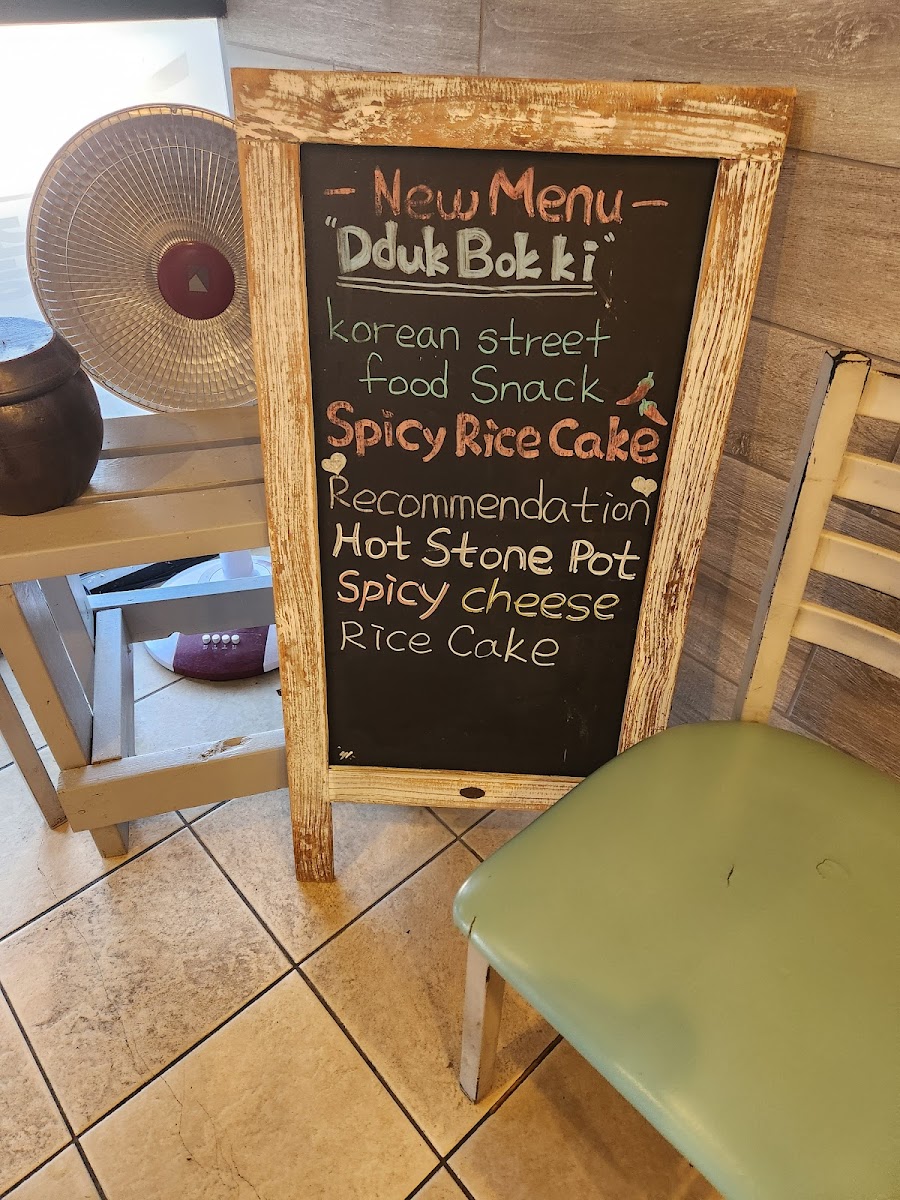 - New Menu -
"Dduk Bok ki"
korean street
food Snack
Spicy Rice Cake
Recommendation
Hot Stone Pot
Spicy cheese
Rice Cake